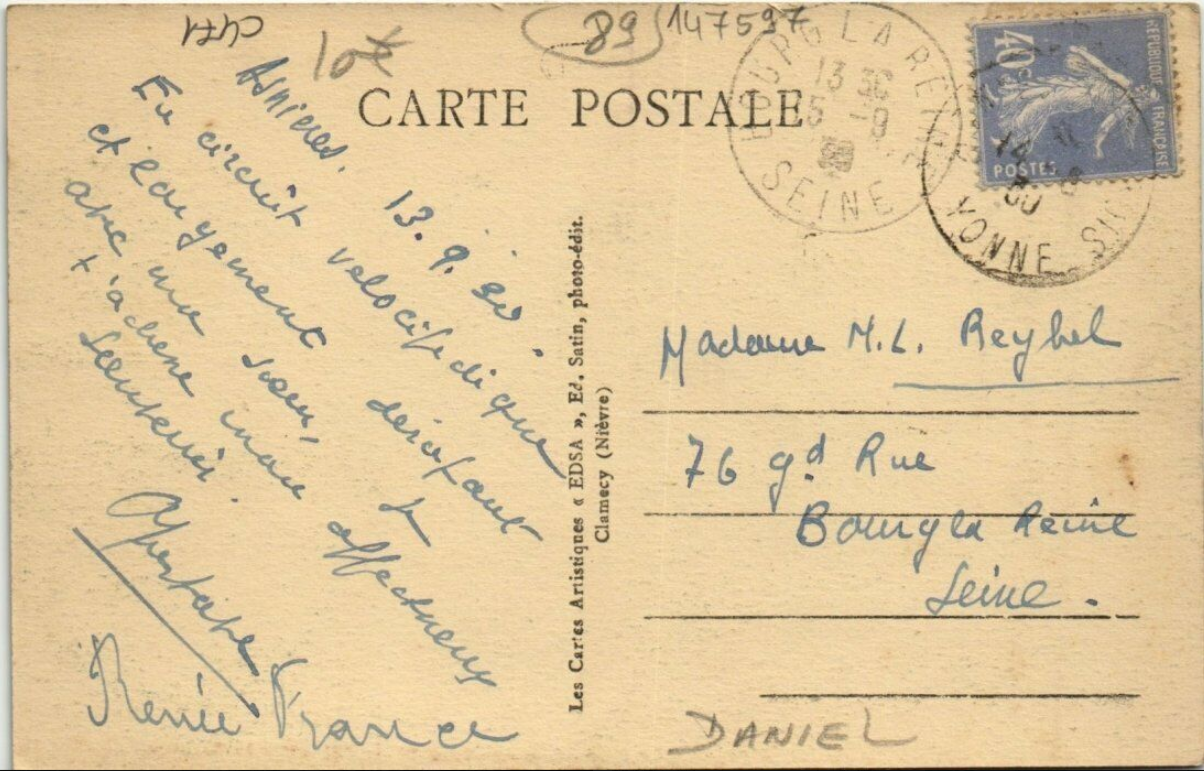 C471
10€
89
147597
CARTE POSTALE
BOURG LA REINE
13 30
15 -9
SEINE
40c
REPUBLIQUE FRANÇAISE
POSTES
YONNE
30
Asnières. 13.9.30.
En circuit vélocipédique
et
avec ma sœur, je
t'adresse mon affectueux
souvenir.
Renée France
Les Cartes Artistiques « EDSA », Ed. Satin, photo-édit.
Clamecy (Nièvre)
Madame M.L. Reybel
76 gd Rue
Bourg la Reine
Seine.
DANIEL